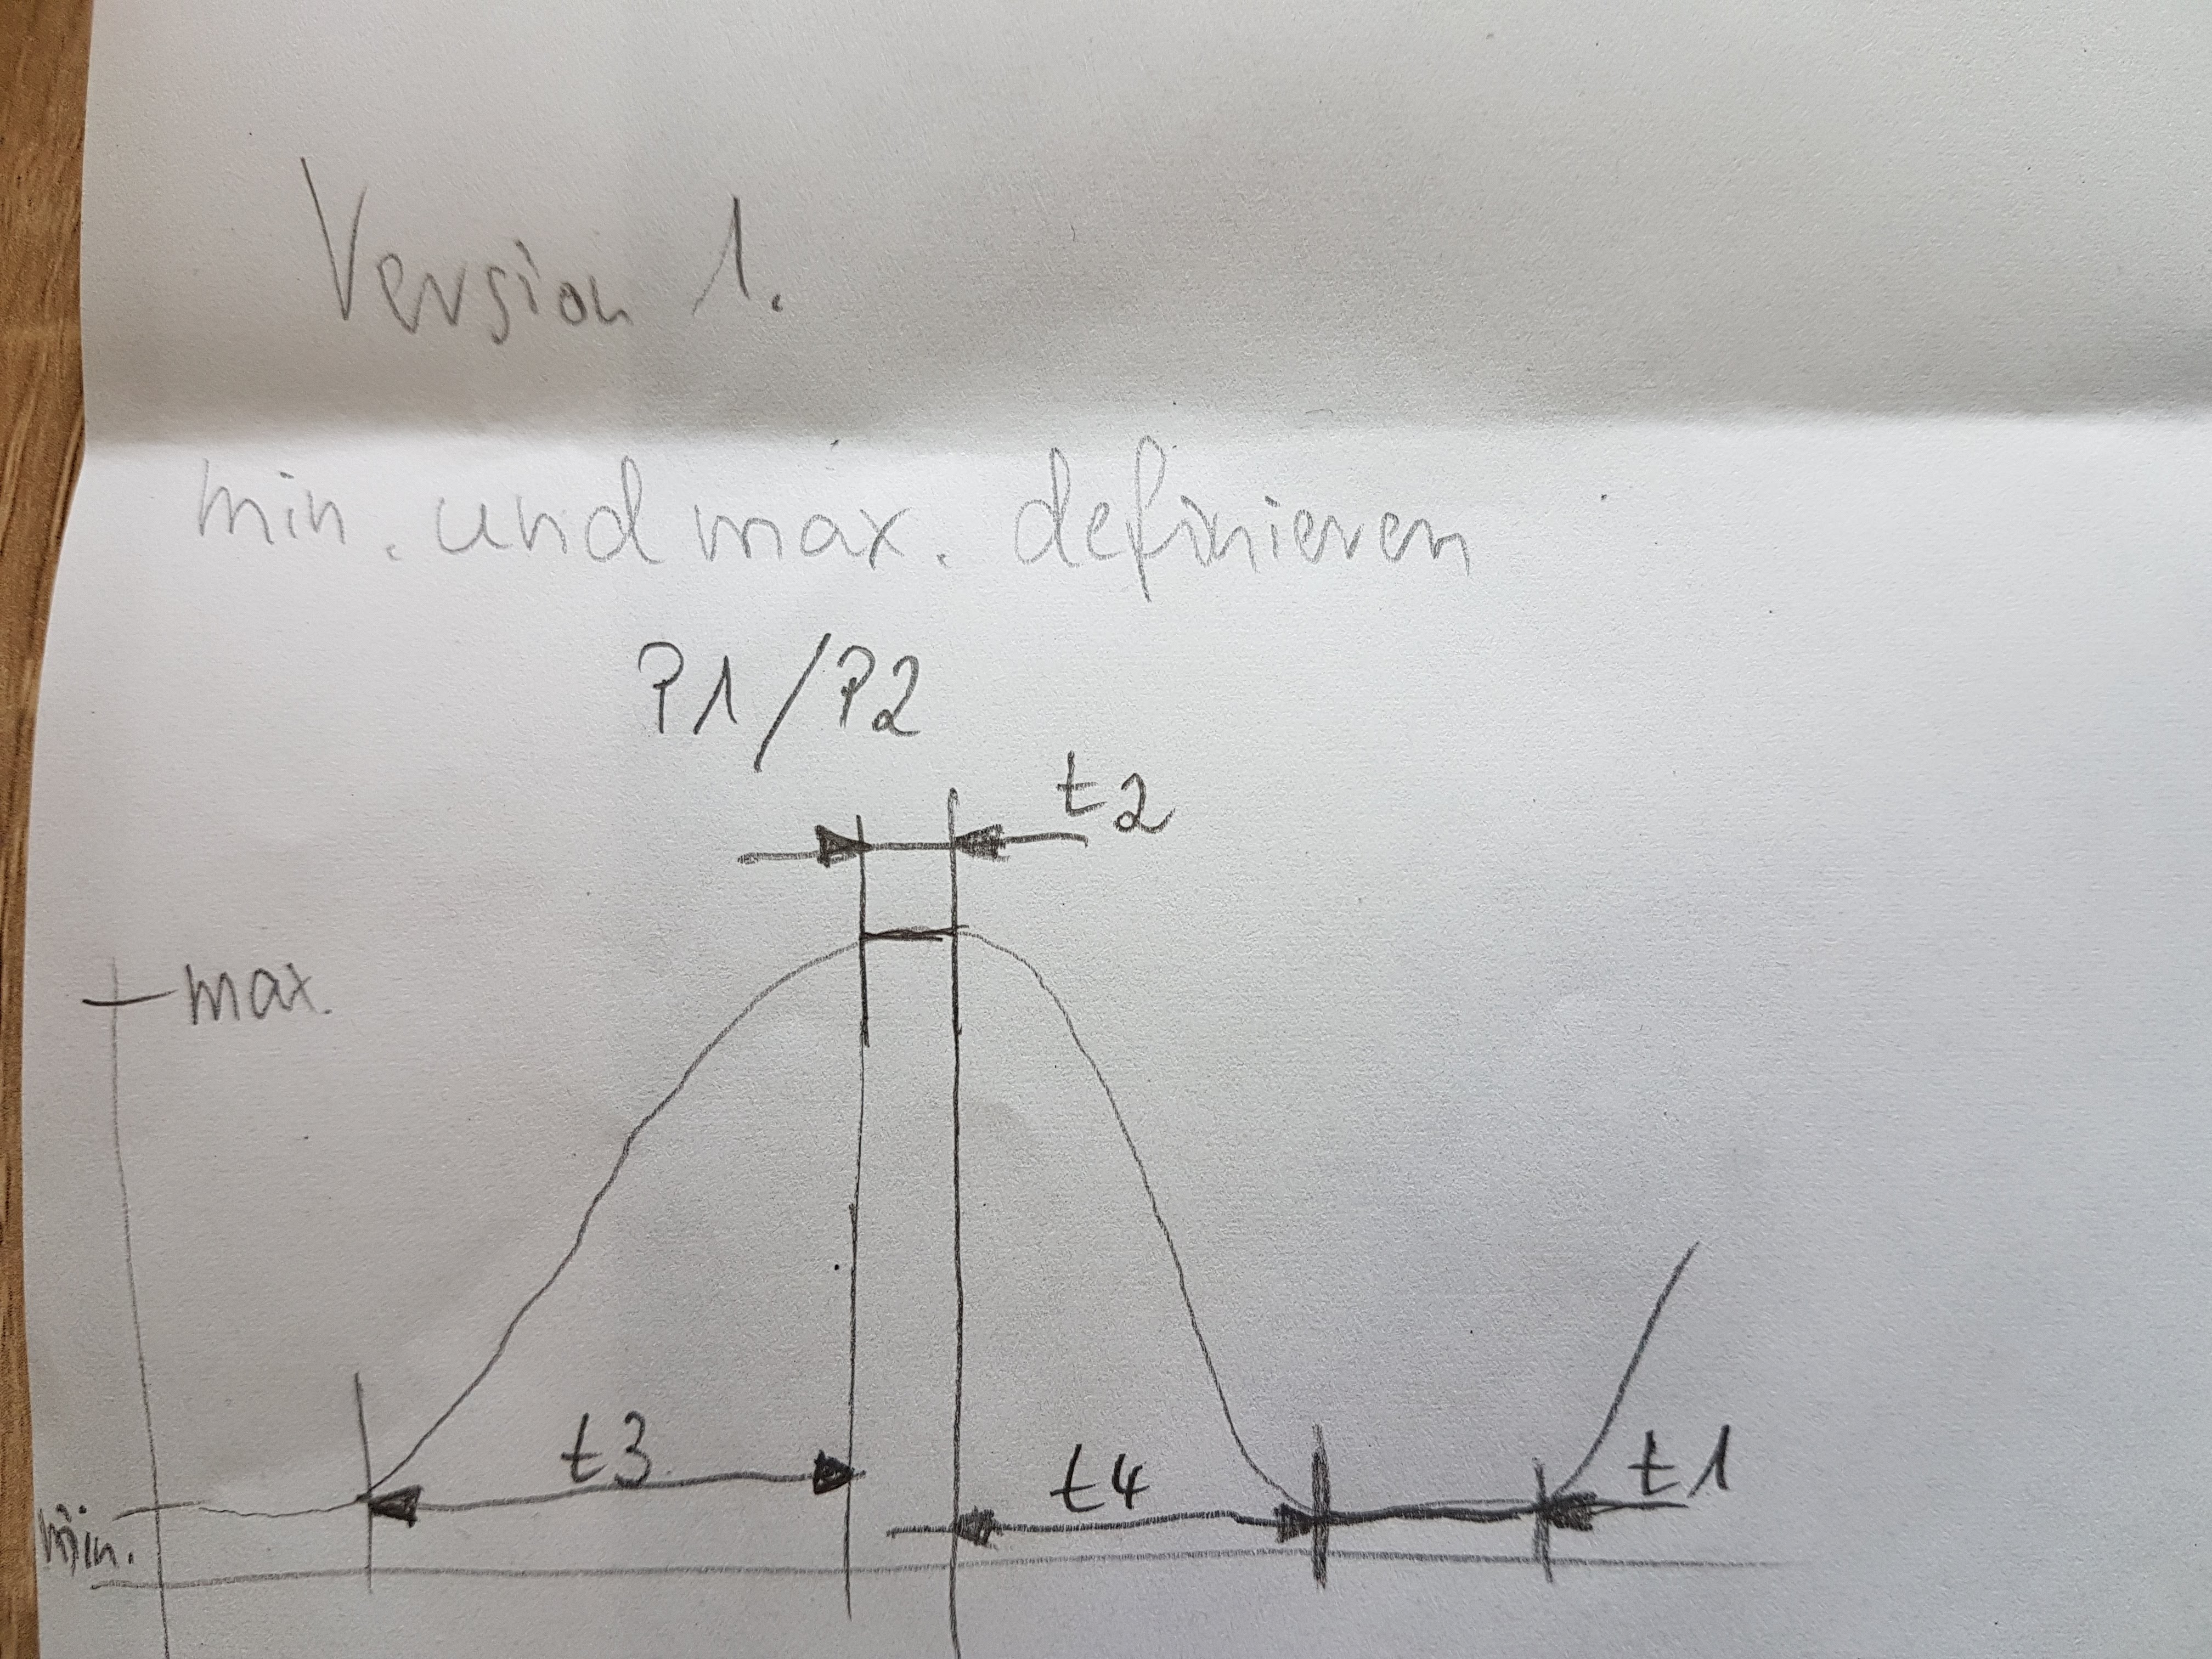 Version 1.
min. und max. definieren
P1/P2
t2
max.
t3
t4
t1
min.